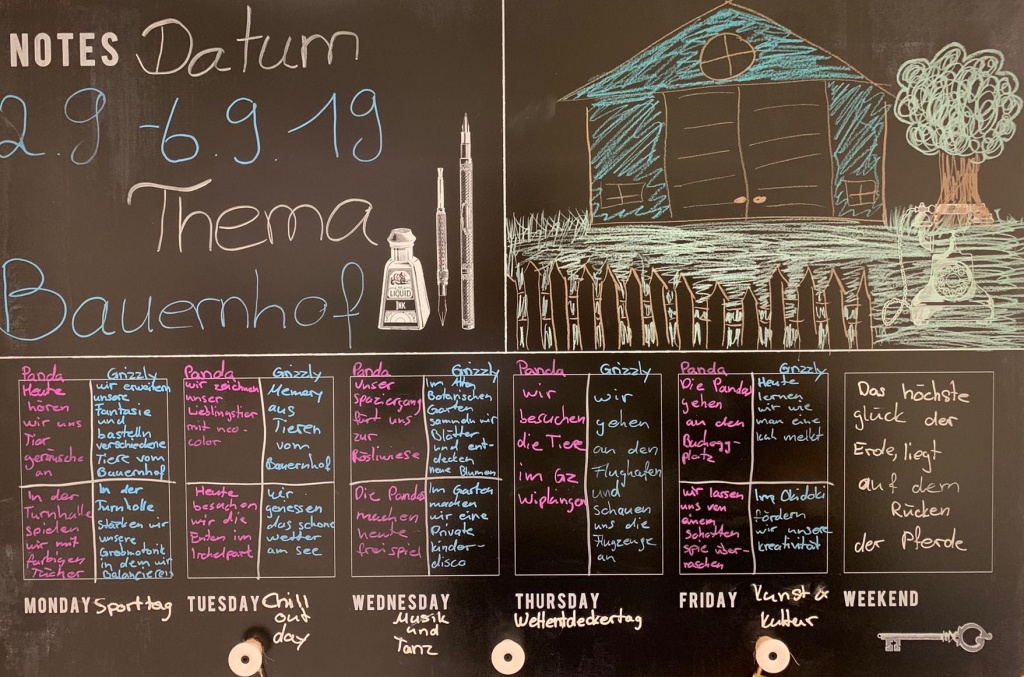 NOTES Datum
2.9 - 6.9.19
Thema
Bauernhof
LIQUID
INK
Panda
Heute
hören
wir uns
Tier
geräusche
an
Grizzly
wir erweitern
unsere
Fantasie
und
basteln
verschiedene
Tiere vom
Bauernhof
In der
Turnhalle
spielen
wir mit
farbigen
Tücher
In der
Turnhalle
Stärken wir
unsere
Grobmotorik
in dem wir
Balancieren
MONDAY Sporttag
Panda
wir zeichnen
unser
Lieblingstier
mit neo-
color
Grizzly
Memory
aus
Tieren
vom
Bauernhof
Heute
besuchen
wir die
Enten im
Irchelpark
wir
genessen
das schöne
wetter
am see
TUESDAY Chill
out
day
Panda
Unser
Spaziergang
fürt uns
zur
Röslíwiese
Grizzly
Im Alten
Botanischen
Garten
sammeln wir
Blätter
und ent-
decken
neue Blumen
Die Pandas
machen
heute
freispiel
Im Garten
machen
wir eine
Private
kinder-
disco
WEDNESDAY
Musik
und
Tanz
Panda
wir
besuchen
die Tiere
im GZ
Wipkingen
Grizzly
wir
gehen
an den
Flughafen
und
Schauen
uns die
Flugzeuge
an
THURSDAY
Weltentdeckertag
Panda
Die Pandas
gehen
an den
Buchegg-
platz
Grizzly
Heute
lernen
wir wie
man eine
kuh melket
wir lassen
uns von
einem
Schatten
spie über-
raschen
Im Okidoki
fördern
wir unsere
kreativität
FRIDAY Kunst &
Kultur
Das höchste
glück der
Erde, liegt
auf dem
Rücken
der Pferde
WEEKEND